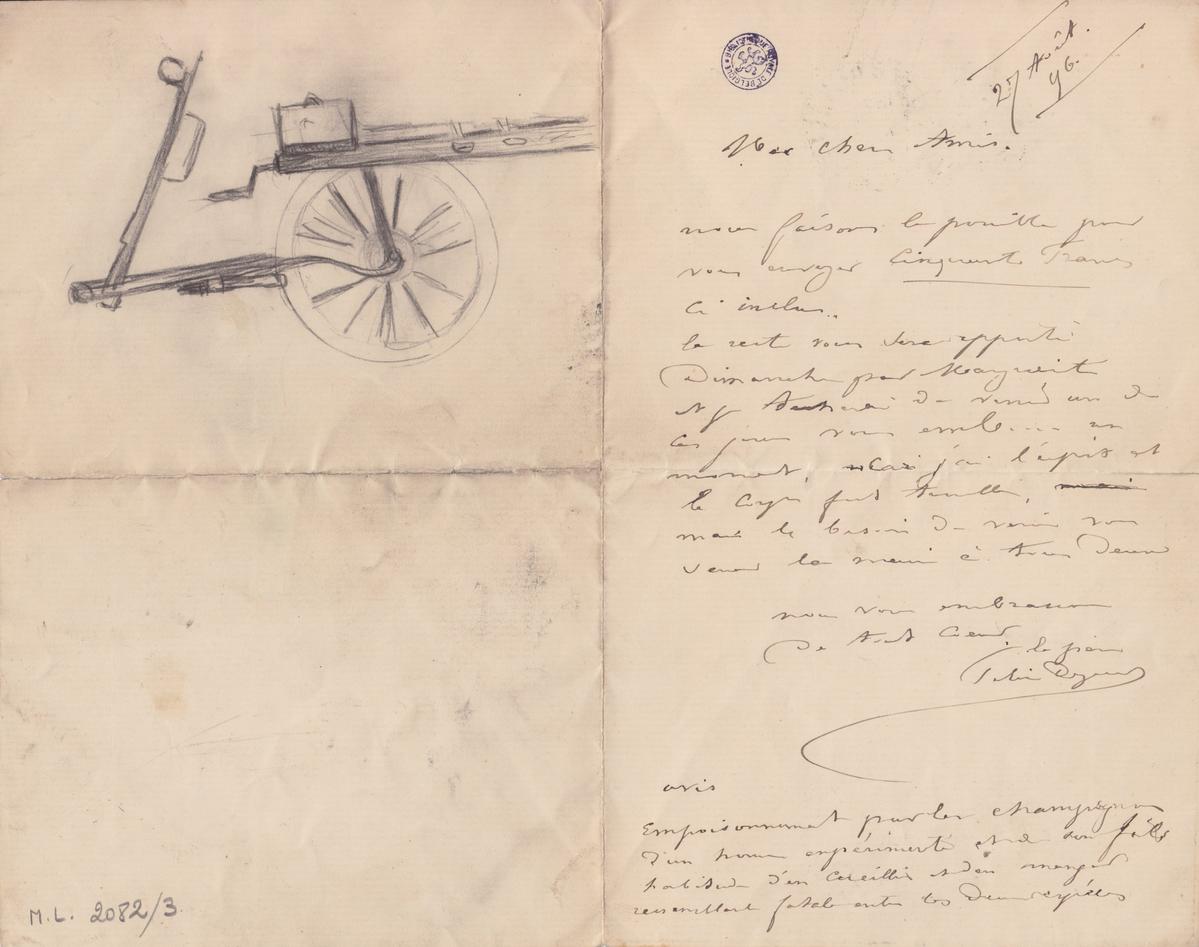 BIBLIOTHEQUE ROYALE DE BELGIQUE
27 Août.
96.
Mes chers Amis.
nous faisons le possible pour
vous envoyer Cinquante Francs
Ci inclus..
le reste vous sera apporté
Dimanche par
et je de un de
ces jours vous un
moment, j'ai l'esprit et
le corps fort
mais le besoin de venir vous
la main à tous Deux
nous vous embrassons
De tout Coeur.
le père
avis
Empoisonnement par les champignons
d'un homme expérimenté et de son fils
habitude d'en Cueillir et d'en manger
fatale entre les Deux espèces
M.L. 2082/3